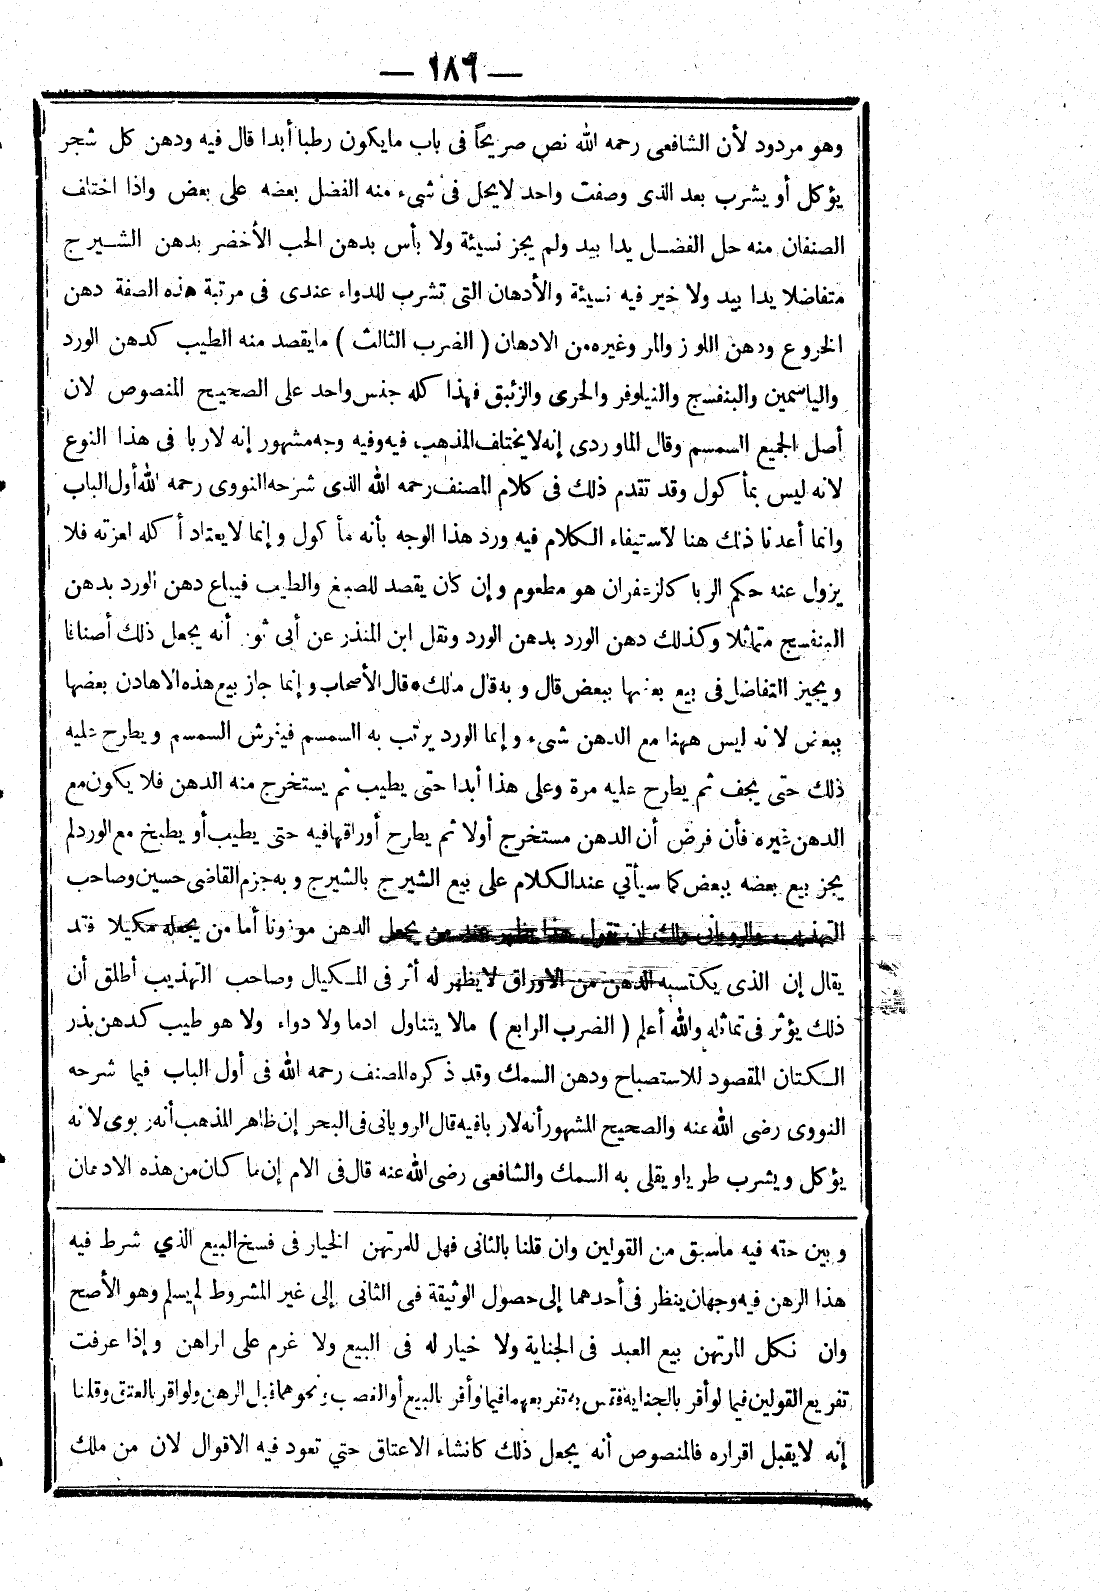 — ١٨٩ —
وهو مردود لأن الشافعى رحمه الله نص صريحاً فى باب مايكون رطبا أبدا قال فيه ودهن كل شجر
يؤكل أو يشرب بعد الذى وصفت واحد لايحل فى شىء منه الفضل بعضه على بعض واذا اختلف
الصنفان منه حل الفضل يدا بيد ولم يجز نسيئة ولا بأس بدهن الحب الأخضر بدهن الشيرج
متفاضلا يدا بيد ولا خير فيه نسيئة والأدهان التى تشرب للدواء عندى فى مرتبة هذه الصفة دهن
الخروع ودهن اللوز والمر وغيره من الادهان ( الضرب الثالث ) مايقصد منه الطيب كدهن الورد
والياسمين والبنفسج والنيلوفر والخرى والزئبق فهذا كله جنس واحد على الصحيح المنصوص لان
أصل الجميع السمسم وقال الماوردى إنه لايختلف المذهب فيه وفيه وجه مشهور إنه لاربا فى هذا النوع
لانه ليس بمأكول وقد تقدم ذلك فى كلام المصنف رحمه الله الذى شرحه النووى رحمه الله أول الباب
وانما أعدنا ذلك هنا لاستيفاء الكلام فيه ورد هذا الوجه بأنه مأكول وإنما لايعتاد أكله لعزته فلا
يزول عنه حكم الربا كالزعفران هو مطعوم وإن كان يقصد للصبغ والطيب فيباع دهن الورد بدهن
البنفسج متماثلا وكذلك دهن الورد بدهن الورد ونقل ابن المنذر عن أبى ثور أنه يجعل ذلك أصنافا
ويجيز التفاضل فى بيع بعضها ببعض قال وبه قال مالك * قال الأصحاب وإنما جاز بيع هذه الاهادن بعضها
ببعض لانه ليس ههنا مع الدهن شىء وإنما الورد يرتب به السمسم فيفرش السمسم ويطرح عليه
ذلك حتى يجف ثم يطرح عليه مرة وعلى هذا أبدا حتى يطيب ثم يستخرج منه الدهن فلا يكون مع
الدهن غيره فأن فرض أن الدهن مستخرج أولا ثم يطرح أوراقها فيه حتى يطيب أو يطبخ مع الورد لم
يجز بيع بعضه ببعض كما سيأتي عند الكلام على بيع الشيرج بالشيرج وبه جزم القاضى حسين وصاحب
التهذيب والرويانى ولك ان تقول هذا يظهر عند من يجعل الدهن موزونا أما من يجعله مكيلا فقد
يقال إن الذى يكتسبه الدهن من الاوراق لايظهر له أثر فى المكيال وصاحب التهذيب أطلق أن
ذلك يؤثر فى تماثله والله أعلم ( الضرب الرابع ) مالا يتناول ادما ولا دواء ولا هو طيب كدهن بذر
الكتان المقصود للاستصباح ودهن السمك وقد ذكره المصنف رحمه الله فى أول الباب فيما شرحه
النووى رضى الله عنه والصحيح المشهور أنه لاربا فيه قال الرويانى فى البحر إن ظاهر المذهب أنه ربوى لانه
يؤكل ويشرب طريا ويقلى به السمك والشافعى رضى الله عنه قال فى الام إن ما كان من هذه الادهان
وبين حته فيه ماسبق من القولين وان قلنا بالثانى فهل للمرتهن الخيار فى فسخ البيع الذي شرط فيه
هذا الرهن فيه وجهان ينظر فى أحدهما إلى حصول الوثيقة فى الثانى إلى غير المشروط لم يسلم وهو الأصح
وان نكل المرتهن بيع العبد فى الجناية ولا خيار له فى البيع ولا غرم على الراهن وإذا عرفت
تفريع القولين فيما لو أقر بالجناية فقس به تفريعهما فيما أقر بالبيع أو الغصب ونحوهما قبل الرهن ولو اقر بالعتق وقلنا
إنه لايقبل اقراره فالمنصوص أنه يجعل ذلك كانشاء الاعتاق حتي تعود فيه الاقوال لان من ملك